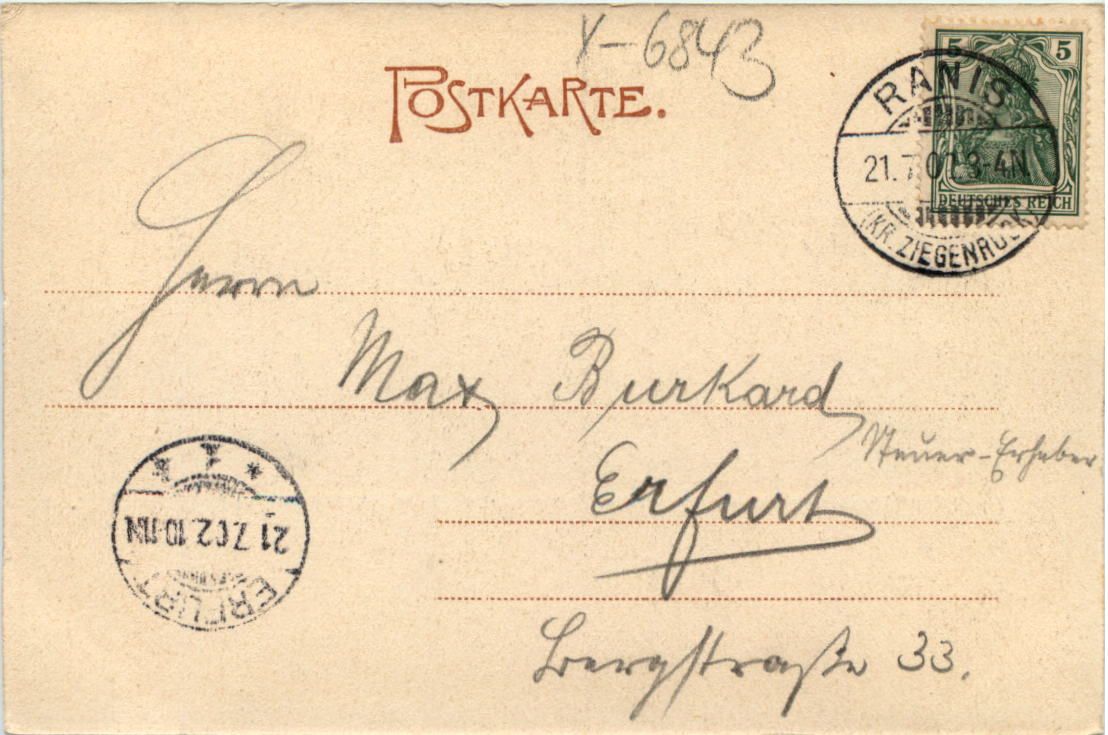 X-6843
POSTKARTE.
5 5
DEUTSCHES REICH
RANIS
21.7.02 3-4N.
(KR. ZIEGENRÜCK)
Herrn
Max Burkard
Steuer-Erheber
Erfurt
Bergstraße 33.
ERFURT
21.7.02.10-11N
* 1 *